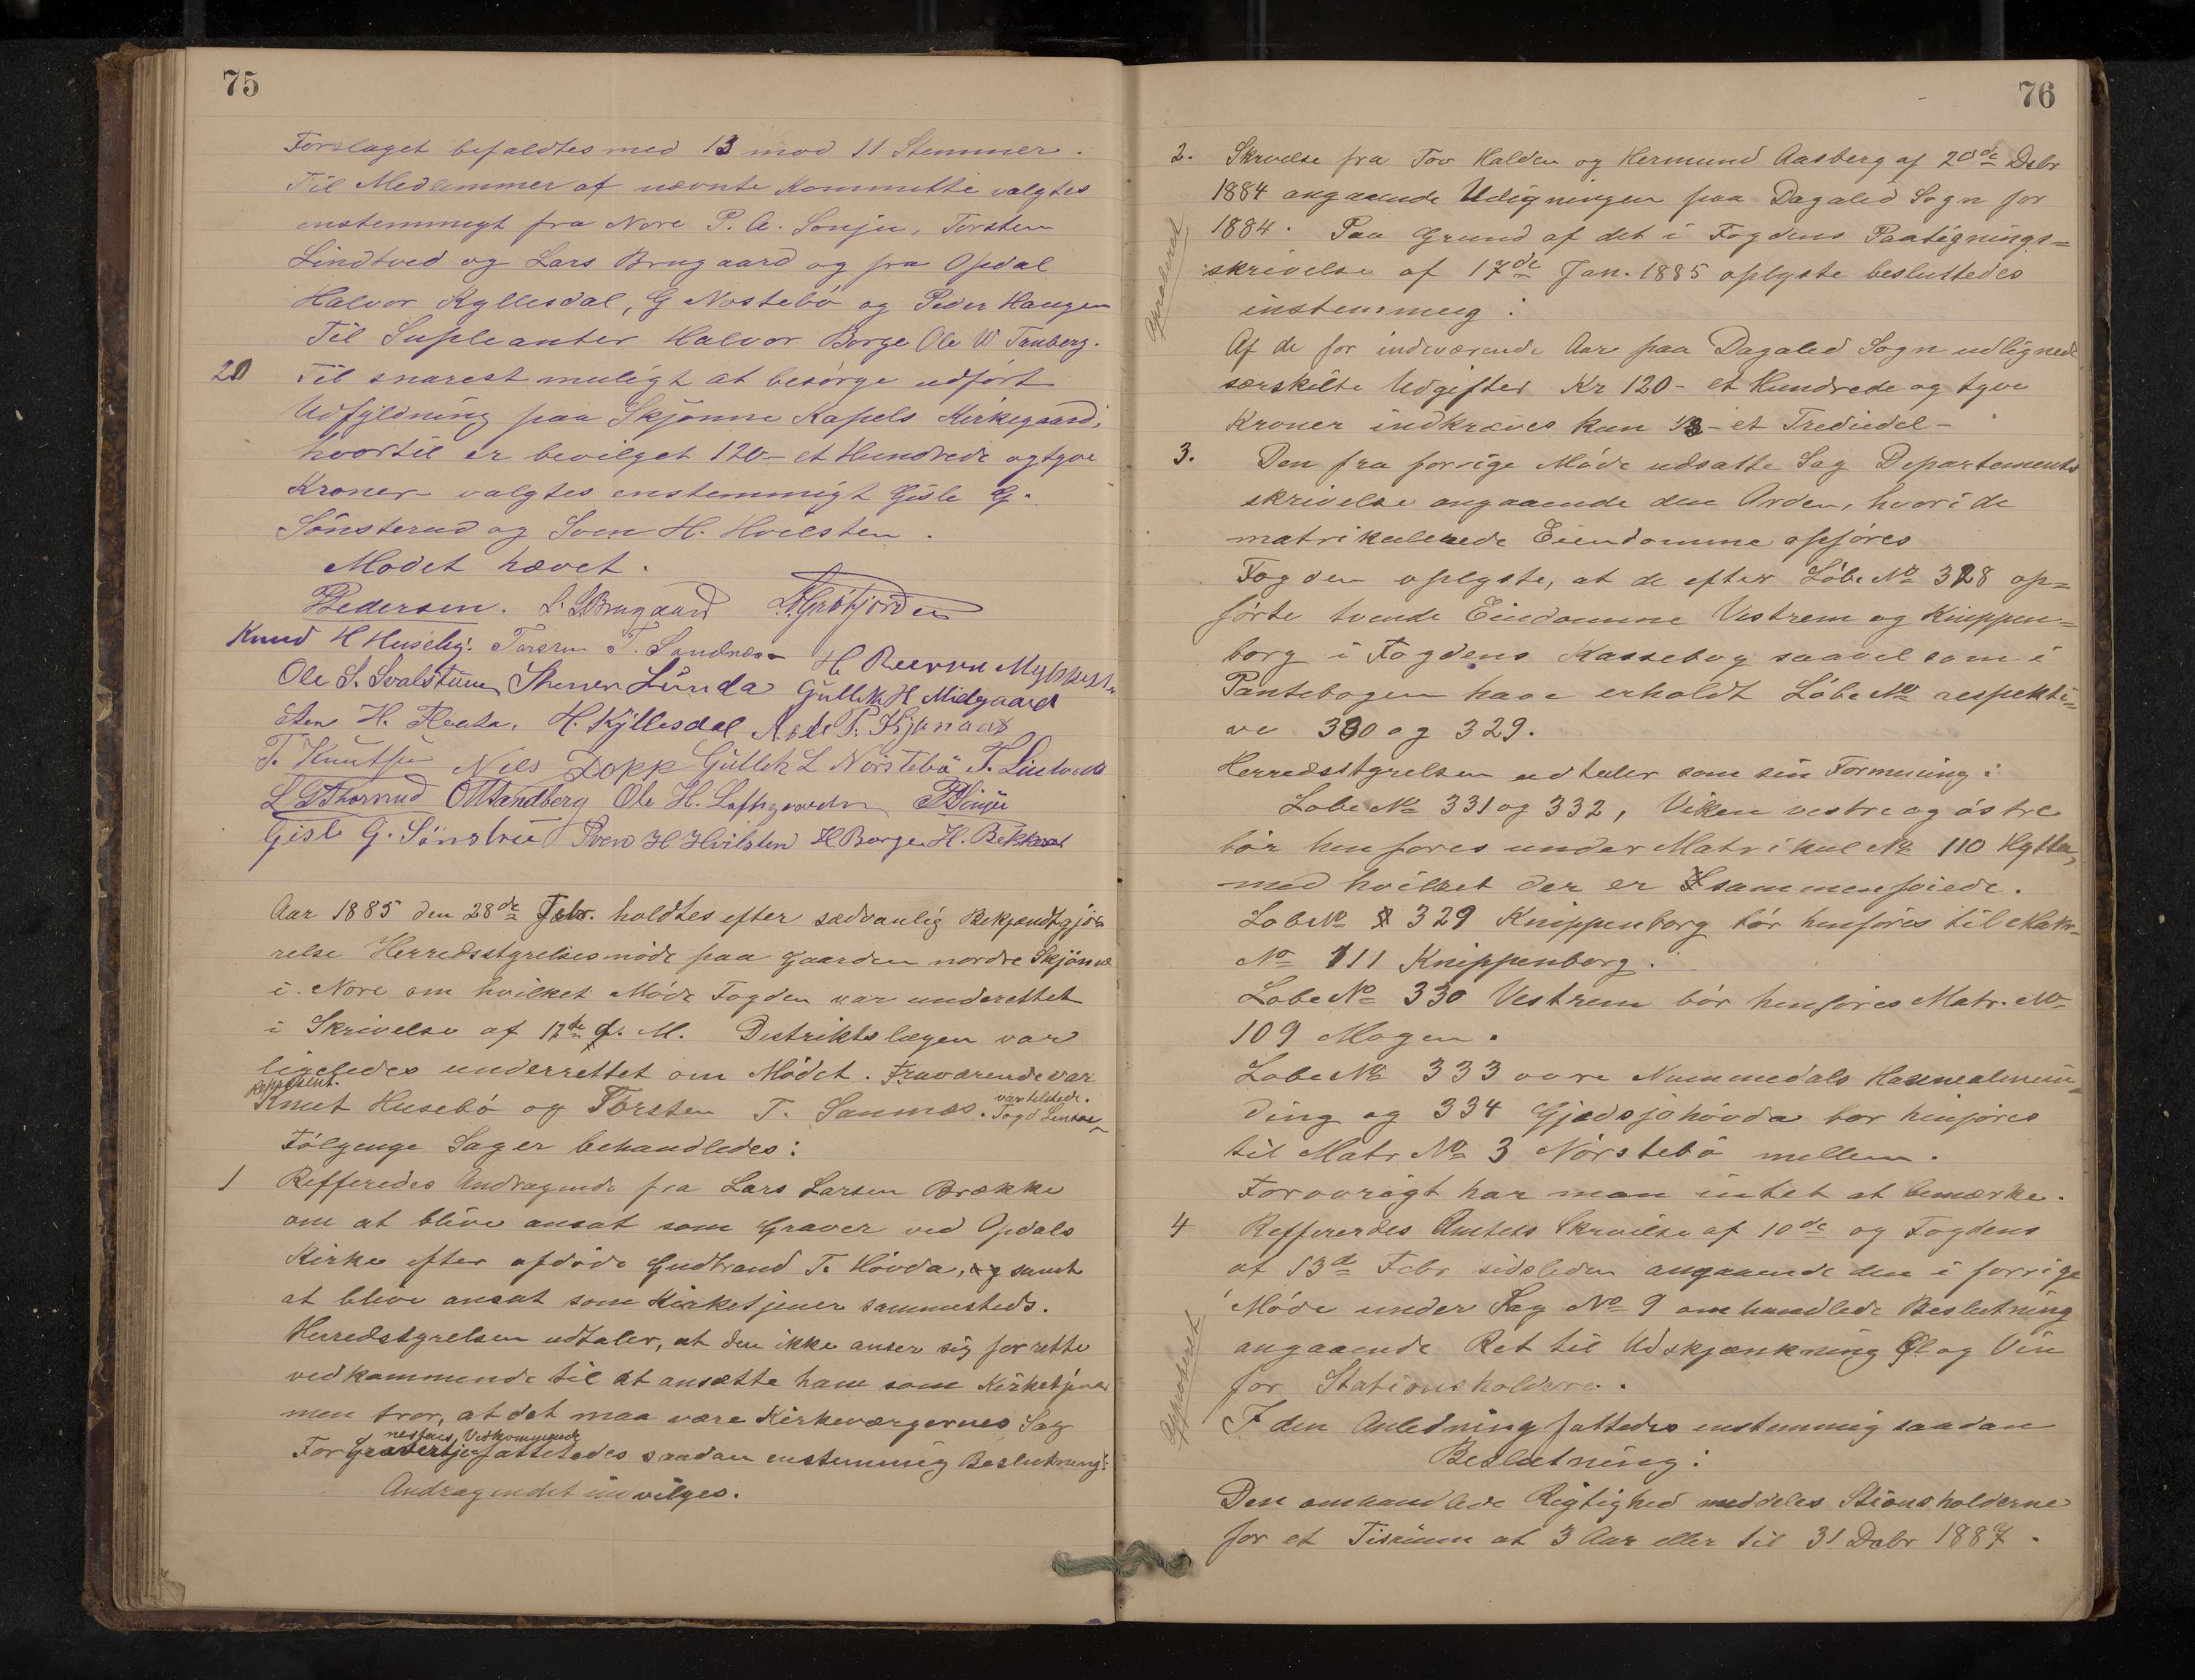 75
Forslaget befaldtes med 13 mod 11 Stemmer.
Til Medlemmer af nævnte Kommitte valgtes
enstemmigt fra Nore P. A. Sonju, Torsten
Lindtved og Lars Brugaard og fra Opdal
Halvor Kyllesdal, G Nostebö og Peder Haugen
Til Supleanter Halvor Borge Ole W Truberg.
20 Til snarest muligt at besörge udfört
Udfyldning paa Skjönne Kapels Kirkegaard,
hvortil er bevilget 120- et Hundrede og tyve
Kroner- valgtes enstemmigt Gisle G.
Sönsterud og Sven H. Hvilsten.
Mödet hævet.
Pedersen. L. L. Brugaard
Knud H Huseby. Torsten T. Sandnæs H
Ole S. Svalstuen Stener Lunda Gullik H Midgaard
Sten H. H. Kyllesdal P.
T. Knutsen Nils Dopp Gullik L Nörstebö T. Lindtved
L G Thorrud O Tandberg Ole H. Loftsgaarden P Sönju
Gisle G. Sönstrud Sven H Hvilsten H Borge H. Bekkeset
Aar 1885 den 28de Febr. holdtes efter sædvanlig Bekjendtgjö=
relse Herredsstyrelsesmöde paa Gaarden nordre Skjönne
i Nore om hvilket Möde Fogden var underettet
i Skrivelse af 17de d. M. Distriktslægen var
ligeledes underrettet om Mödet. Fraværende var
Repræsent. Knut Husebö og Torsten T. Sannæs. Fogd var tilstede.
Fölgenge Sager behandledes:
1 Refferedes Andragende fra Lars Larsen Brække
om at blive ansat som Graver ved Opdals
Kirke efter afdöde Gudbrand T. Hövda, og samt
at blive ansat som Kirketjener sammesteds.
Herredstyrelsen udtaler, at den ikke anser sig for rette
vedkommende til at ansætte ham som Kirketjener
men tror, at det maa være Kirkeværgernes Sag
For Gravertjenestens Vedkommende fattetedes saadan enstemmig Beslutning:
Andragendet invilges.
76
2. Skrivelse fra Tov Halden og Hermund Aasberg af 20de Dsbr
1884 angaaende Udligningen paa Dagalid Sogn for
1884. Paa Grund af det i Fogdens Paategnings=
skrivelse af 17de Jan. 1885 oplyste besluttedes
enstemmig:
Af de for indeværende Aar paa Dagalid Sogn udlignede
særskilte Udgifter Kr 120- et Hundrede og tyve
Kroner indkræves kun 1/3- et Trediedel-
3. Den fra forrige Möde udsatte Sag Departements
skrivelse angaaende den Orden, hvori de
matrikulerede Eiendomme opföres
Fogden oplyste, at de efter Löbe No 328 op=
förte tvende Eiendomme Vestrem og Knippen=
borg i Fogdens Kassebog saavel som i
Pantebogen have erholdt Löbe No respekti=
ve 330 og 329.
Herredsstyrelsen udtaler som sin Formening:
Löbe No 331 og 332, Viken vestre og östre
bör henföres under Matrikul No 110 Hytta,
med hvilket der er sammenföiede.
Löbe No 329 Knippenborg bör henföres til Matr.
No 111 Knippenborg.
Löbe No 330 Vestrem bör henföres Matr. No
109 Mogen.
Löbe No 333 övre Nummedals Havnealmin=
ding og 334 Gjedsjöhövda bör henföres
til Matr No 3 Nörstebö mellem.
Forövrigt har man intet at bemærke.
4 Reffererdes Amtets Skrivelse af 10de og Fogdens
af 13de Febr sidsleden angaaende den i forrige
Möde under Sag No 9 omhandlede Beslutning
angaaende Ret til Udskjænkning Öl og Vin
for Stationsholdere.
I den Anledning fattedes enstemmig saadan
Beslutning:
Den omhandlede Rigtighed meddeles Stionsholderne
for et Tisrium at 3 Aar eller til 31 Dsbr 1887.